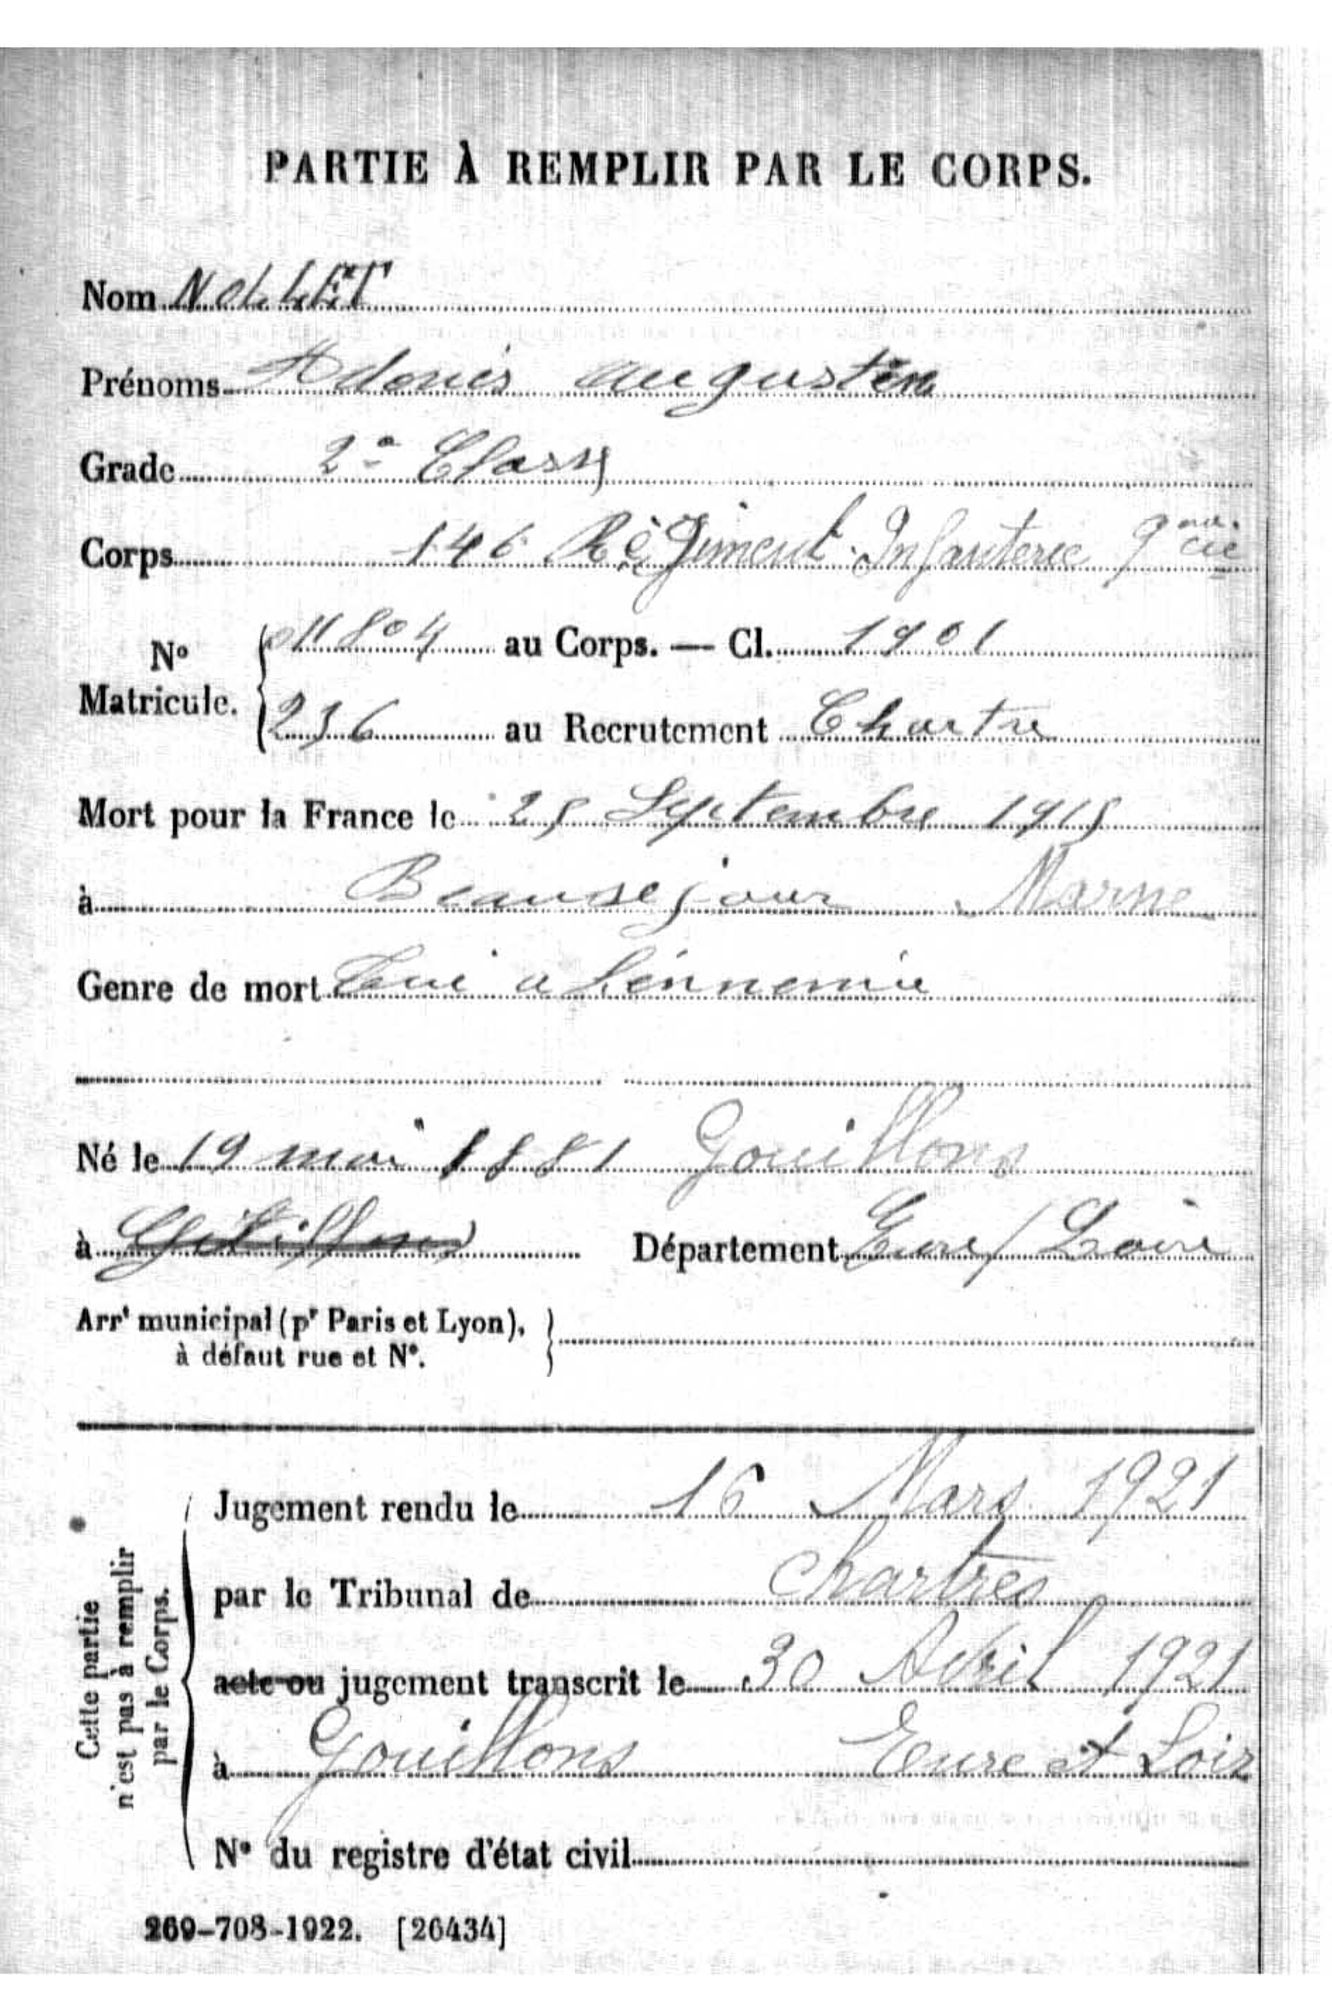 PARTIE À REMPLIR PAR LE CORPS.
Nom NOLLET
Prénoms Adonis augustin
Grade 2e Classe
Corps 146 Régiment Infanterie 9eme cie
No Matricule. 11804 au Corps. — Cl. 1901
236 au Recrutement Chartre
Mort pour la France le 25 Septembre 1915
à Beausejour Marne
Genre de mort Tué a L'énnemie
Né le 19 mai 1881 Gouillons
à Département Eure / Loire
Arrt municipal (pr Paris et Lyon),
à défaut rue et No.
Cette partie
n'est pas à remplir
par le Corps.
Jugement rendu le 16 Mars 1921
par le Tribunal de Chartres
acte ou jugement transcrit le 30 Avril 1921
à Gouillons Eure et Loir
No du registre d'état civil
269-708-1922. [26434]